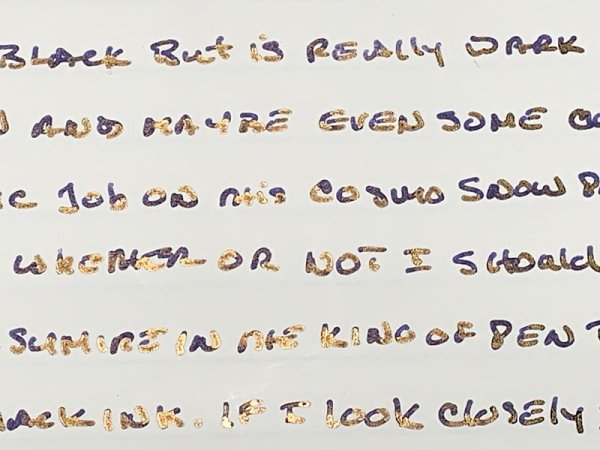 BLACK BUT IS REALLY DARK
AND MAYBE EVEN SOME
JOB ON THIS COSMO SNOW
WHETHER OR NOT I SHOULD
IN THE KING OF PEN
INK. IF I LOOK CLOSELY